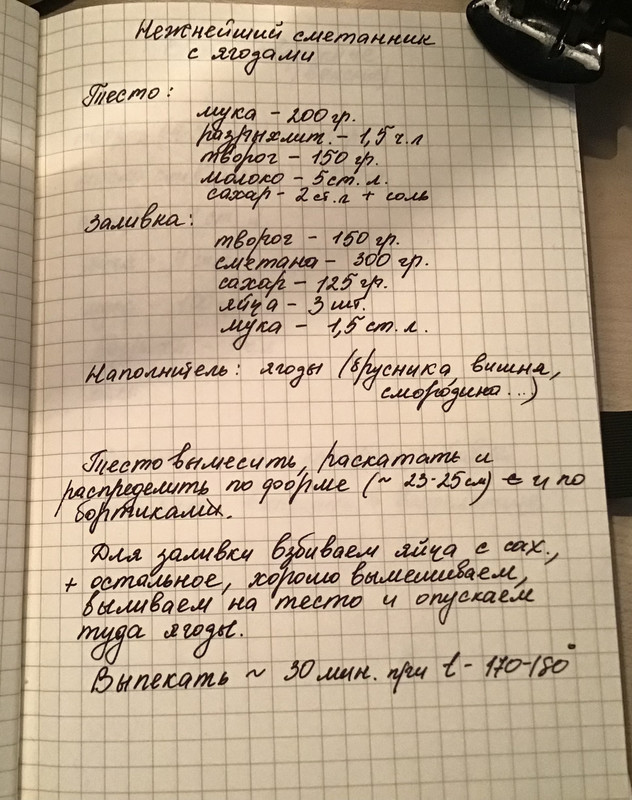 Нежнейший сметанник
с ягодами
Тесто:
мука - 200 гр.
разрыхлит. - 1,5 ч.л
творог - 150 гр.
молоко - 5 ст. л.
сахар - 2 ст.л + соль
Заливка:
творог - 150 гр.
сметана - 300 гр.
сахар - 125 гр.
яйца - 3 шт.
мука - 1,5 ст. л.
Наполнитель: ягоды (брусника вишня,
смородина...)
Тесто вымесить, раскатать и
распределить по форме (~ 23-25 см) и по
бортикам.
Для заливки взбиваем яйца с сах.,
+ остальное, хорошо вымешиваем,
выливаем на тесто и опускаем
туда ягоды.
Выпекать ~ 30 мин. при t - 170-180°